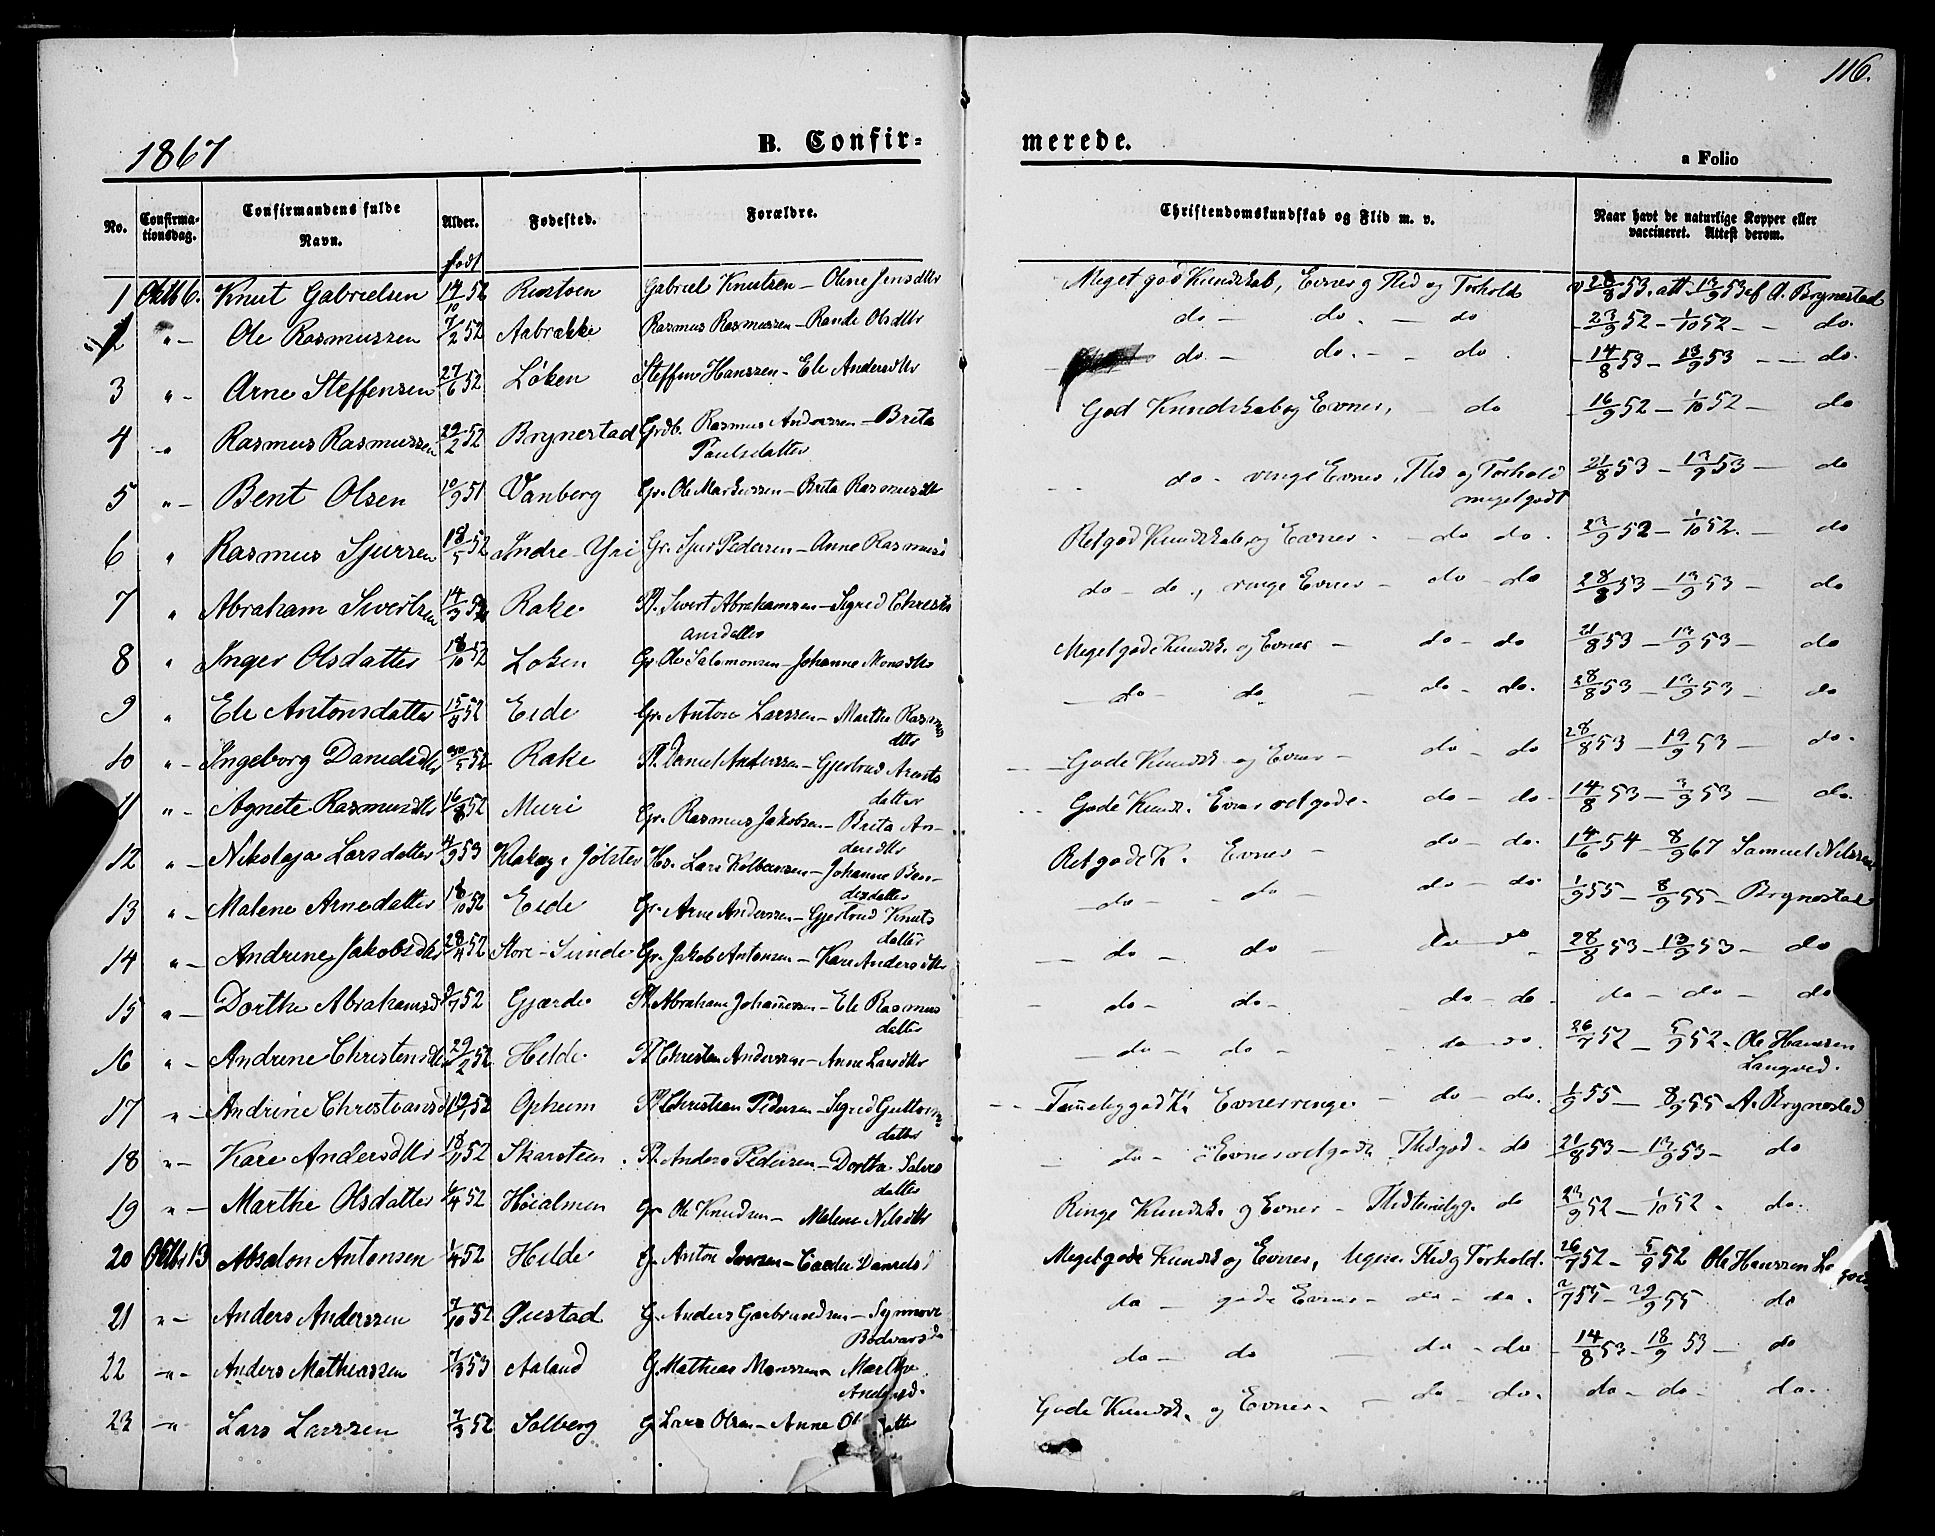 116.
1867 B. Confir= merede.
a Folio
No. Confirma-tionsdag. Confirmandens fulde Navn. Alder. Fødested. Forældre. Christendomskundskab og Flid m. v. Naar havt de naturlige Kopper eller vaccineret. Attest derom.
født
1 Octb 6. Knut Gabrielsen 14/10 52 Gabriel Knutsen – Oline Jensdttr Meget god Kundskab, Evner g Flid og Forhold 28/8 53. att. 13/9 53 af A. Brynestad
2 " – Ole Rasmussen 7/2 52 Aabrække Rasmus Rasmussen – Rande Olsdttr do – do. – do 23/9 52 – 1/10 52 – – do.
3 " – Arne Steffensen 27/6 52 Løken Steffen Hanssen – Ele Andersdttr do. – do. – – do. 14/8 53 – 13/9 53 – – do.
4 " Rasmus Rasmussen 29/2 52 Brynestad Grdb. Rasmus Anderssen – Brita Paulsdatter God Kundskab og Evner, – do 16/9 52 – 1/10 52 – do
5 " – Bent Olsen 10/9 51 Vanberg Gr. Ole Markussen – Brita Rasmusdttr do – ringe Evner, Flid og Forhold meget godt 21/8 53 – 13/9 53 – do
6 " Rasmus Sjurssen 18/5 52 Indre-Yri Gr. Sjur Pedersen – Anne Rasmusd Retgod Kundskab og Evner – do do. 23/9 52 – 1/10 52. – do
7 " Abraham Sivertsen 14/3 52 Rake Pl. Sivert Abrahamsen – Sigrid Christiansdatter do – do., ringe Evner – do – do 28/8 53 – 13/9 53 – do
8 " Inger Olsdatter 18/10 52 Løken Gr. Ole Salomonsen – Johanne Monsdttr Meget gode Kundsk. og Evner – do – do 21/8 53 – 13/9 53 – do
9 " Ele Antonsdatter 15/8 52 Eide Gr. Anton Larssen – Marthe Rasmusdttr – do – do – do – do. 28/8 53 – 13/9 53 – do
10 " – Ingeborg Danielsdttr 52 Rake Pl. Daniel Anderssen – Gjertrud Arentsdatter Gode Kundsk. og Evner – do – do 28/8 53 – 19/9 53 – do.
11 " – Agnete Rasmusdttr 16/8 52 Muri Gr. Rasmus Jakobsen – Brita Andersdttr Gode Kundsk. Evner ret gode. do – do 14/8 53 – 3/9 53 – do.
12 " – Nikolaja Larsdatter 4/9 53 Klakeg i Jølster Hr. Lars Kolbensen – Johanne Bendixdatter Ret gode K. Evner – do – do. 14/6 54 – 8/9 67 Samuel Nilssen
13 " – Malene Arnedatter 18/10 52 Eide Gr. Arne Anderssen – Gjertrud Knutsdatter – do – – do – do – do 1/9 55 – 8/9 55 – Brynestad
14 " – Andrine Jakobsdttr 28/4 52 Store-Sunde Gr. Jakob Antonsen – Kari Andersdttr – do – do – do – do 28/8 53 – 13/9 53 – do
15 " – Dorthe Abrahamsd 9/7 52 Gjærde Pl. Abraham Johannessen – Ele Rasmusdatter – do – do – do – do – do – do – do
16 " – Andrine Christensdtt 29/2 52 Helde Pl. Christen Anderssen – Anne Larsdttr – do – do – – do – do. 26/7 52 – 5/9 52. Ole Hanssen Langved.
17 " – Andrine Christiansd 52 Opheim Pl. Christian Pedersen – Sigrid Guttormsdatter Temelig god K. Evner ringe – do – do. 1/9 55 – 8/9 55 A. Brynestad
18 " – Kare Andersdttr 18/11 52 Skarsteen. Pl. Anders Pedersen – Dorthe Salvesdatter – do – Evner ret gode Flid god – do 21/8 53 – 13/9 53 – do
19 " – Marthe Olsdatter 6/4 52 Høialmen Gr. Ole Knudsen – Malene Nilsdttr Ringe Kundsk. og Evner – Flid temelig g. do 23/9 52 – 1/10 52 – do.
20 Octbr 13 Absalon Antonsen 1/4 52 Helde G. Anton Iversen – Danielsd Meget gode Kundsk og Evner, Flid g Forhold. 26/7 52 – 5/9 52 Ole Hanssen
21 " – Anders Anderssen 7/10 52 G. Anders Garbrandsen – Synnøve Bødvarsd do – gode Evner – do – do. 2/7 55 – 29/9 55 do
22 " – Anders Mathiassen 7/3 53 Aaland G. Mathias Monssen – Marthe Andersd. do – do – do – do 14/8 53 – 18/9 53 – do
23 " Lars Larssen 7/3 52 Solberg G Lars Olsen – Anne Ol datter Gode Kundsk. og Evner. – do – do. do – do – do.